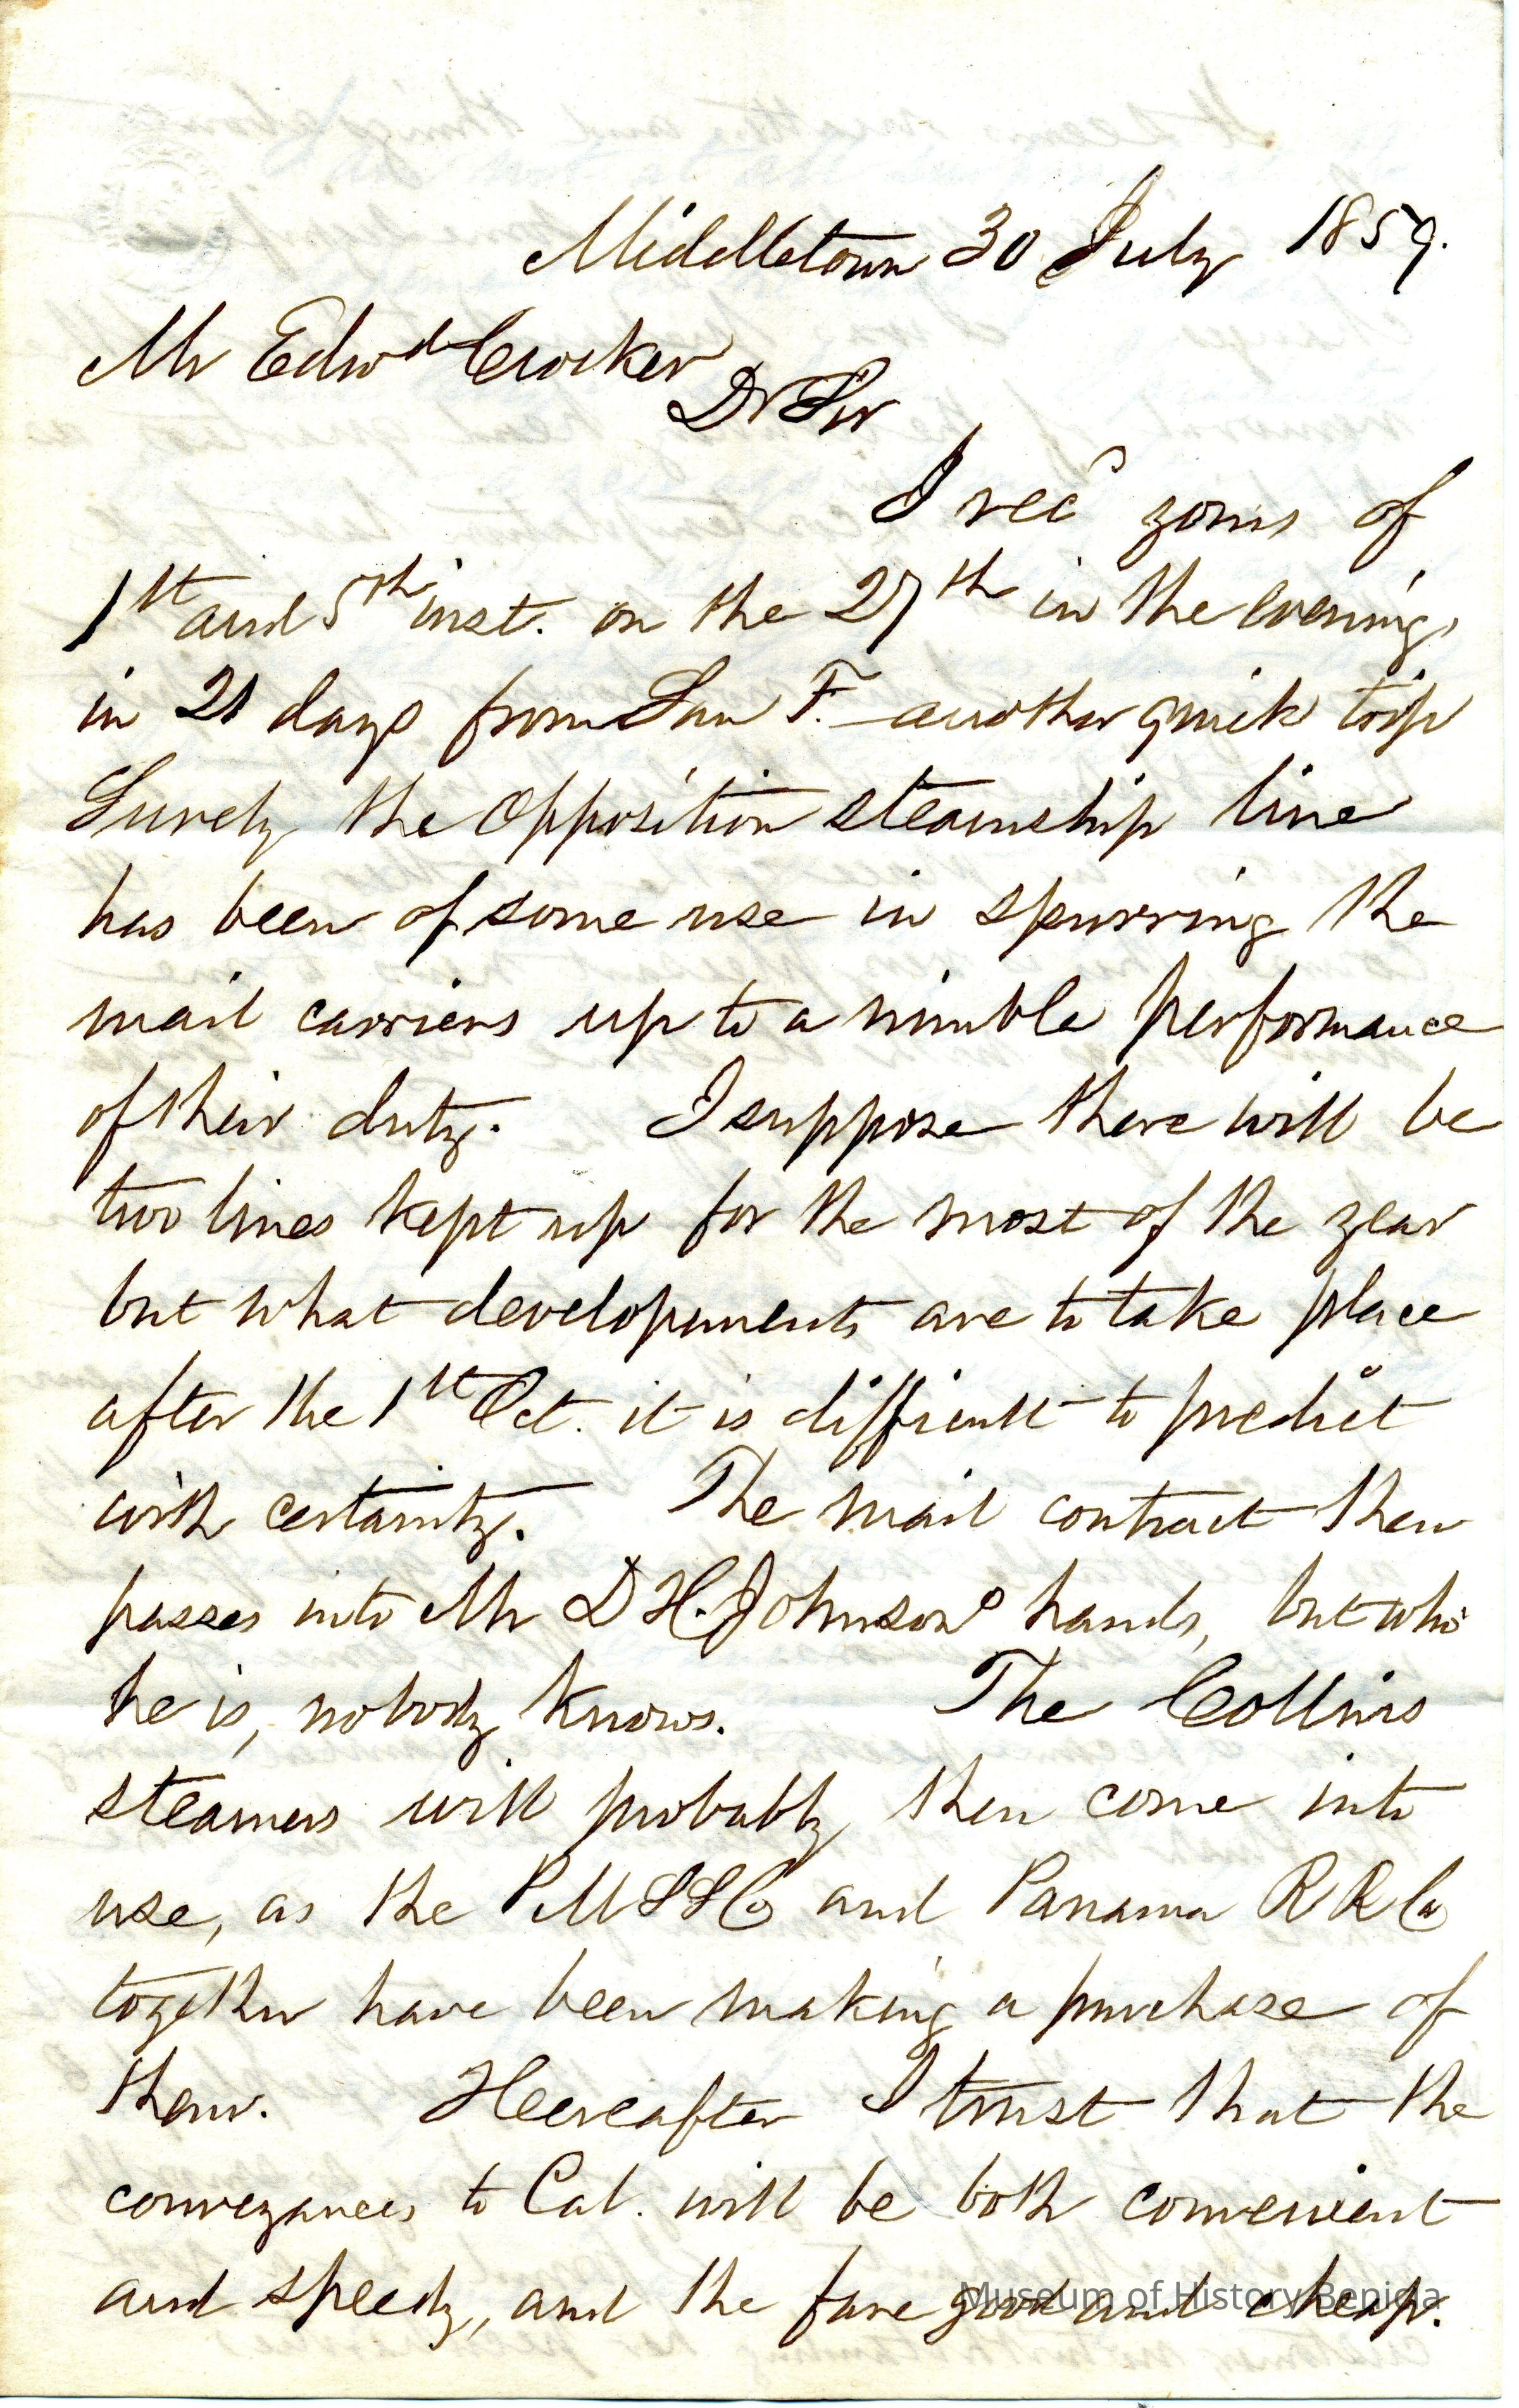 Middletown 30 July 1859.
Mr Edwd Crocker
Dr Sir
I recd yours of
1st and 5th inst. on the 27th in the evening,
in 21 days from San F. - another quick trip
Surely the opposition steamship line
has been of some use in spurring the
mail carriers up to a nimble performance
of their duty. I suppose there will be
two lines kept up for the most of the year
but what developments are to take place
after the 1st Oct. it is difficult to predict
with certainty. The mail contract then
passes into Mr D H. Johnsons hands, but who
he is, nobody knows. The Collins
steamers will probably then come into
use, as the P M S S Co and Panama R R Co
together have been making a purchase of
them. Heereafter I trust that the
conveyances to Cal. will be both convenient
and speedy, and the fare good and cheap.
Museum of History Benicia